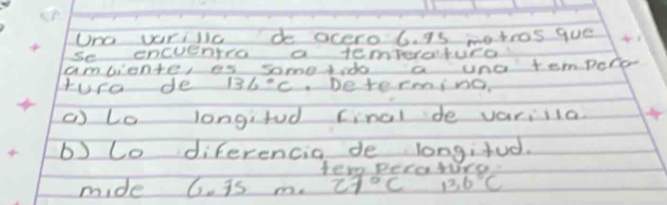 Una varilla de acero 6.95 metros que
se encuentra a temperatura
ambiente, es sometido a una tempera
tura de 136°C. Determina.
a) Lo longitud final de varilla.
b) Lo diferencia de longitud.
temperatura
mide 6.95 m. 27°C 136°C